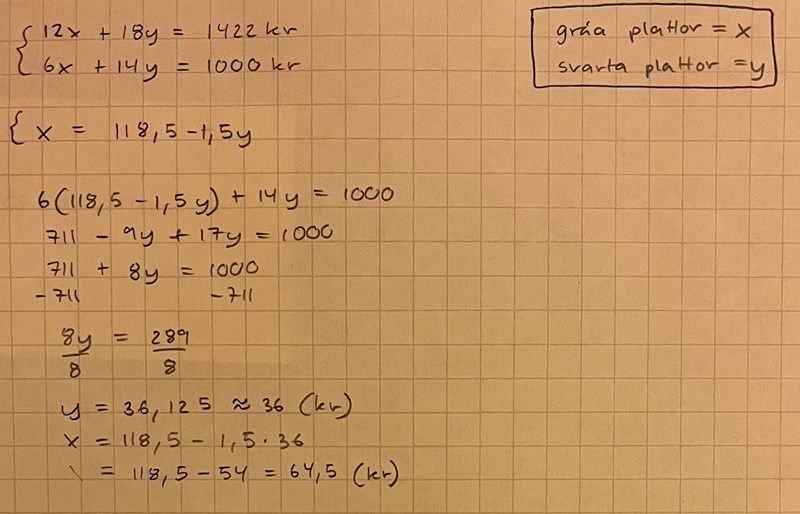 12x + 18y = 1422 kr
6x + 14y = 1000 kr
gråa plattor = x
svarta plattor = y
x = 118,5 - 1,5y
6(118,5 - 1,5y) + 14y = 1000
711 - 9y + 17y = 1000
711 + 8y = 1000
-711 -711
8y/8 = 289/8
y = 36,125 ≈ 36 (kr)
x = 118,5 - 1,5 · 36
\ = 118,5 - 54 = 64,5 (kr)